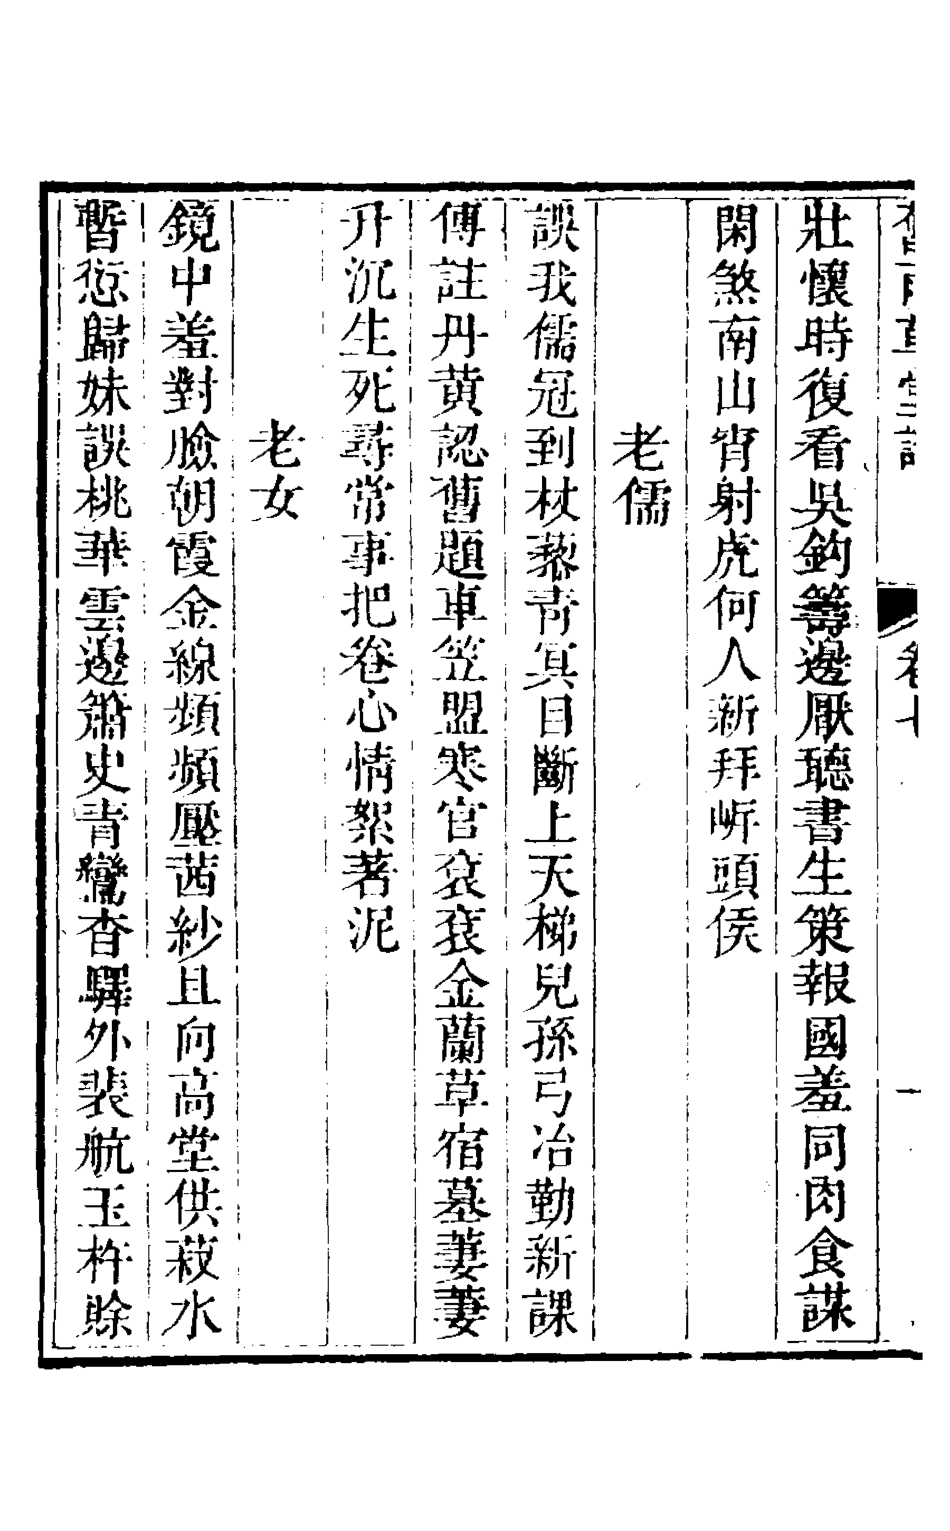 舊雨草堂詩 卷七 一
壯懷時復看吳鈎籌邊厭聽書生策報國羞同肉食謀
閑煞南山宵射虎何人新拜岍頭侯
老儒
誤我儒冠到杖藜靑冥目斷上天梯兒孫弓冶勤新課
傳註丹黃認舊題車笠盟寒官袞袞金蘭草宿墓萋萋
升沉生死尋常事把卷心情絮著泥
老女
鏡中羞對臉朝霞金線頻頻壓茜紗且向高堂供菽水
暫愆歸妹誤桃華雲邊簫史青鸞杳驛外裴航玉杵賒